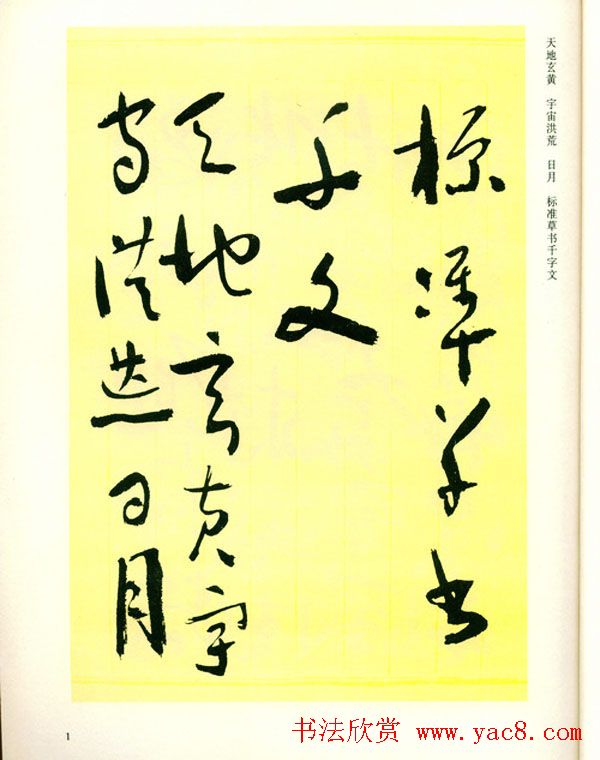 天地玄黄 宇宙洪荒 日月 标准草书千字文
標準草書
千文
天地玄黄宇
宙洪荒日月
1
书法欣赏 www.yac8.com